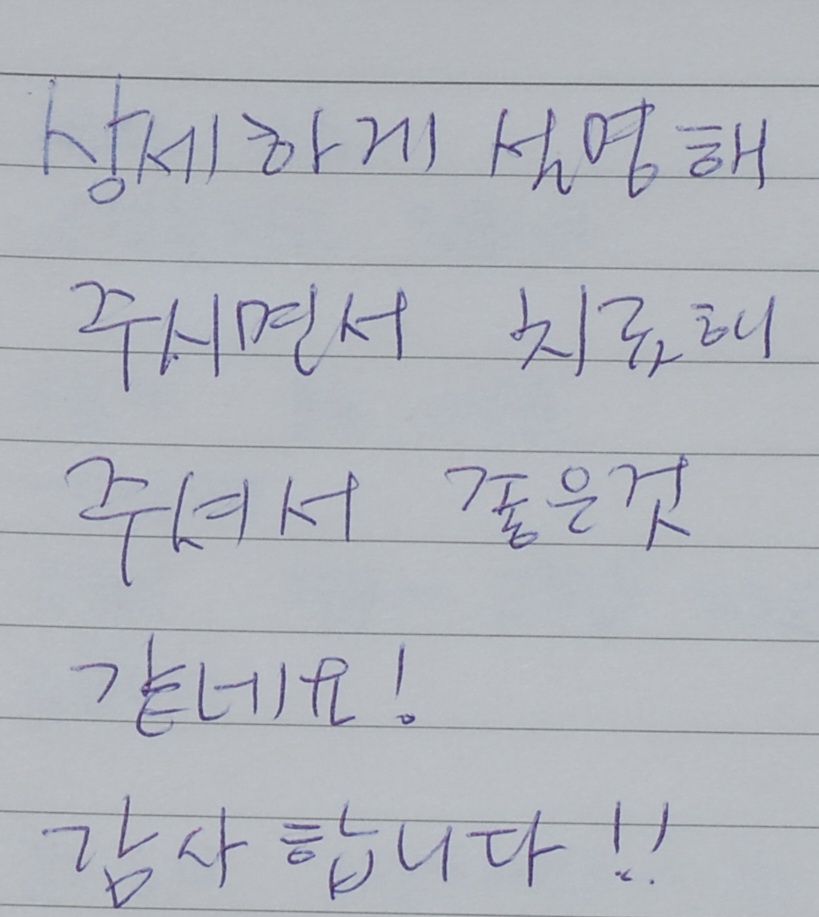 상세하게 설명해
주시면서 치료해
주셔서 좋은것
같네요!
감사합니다!!